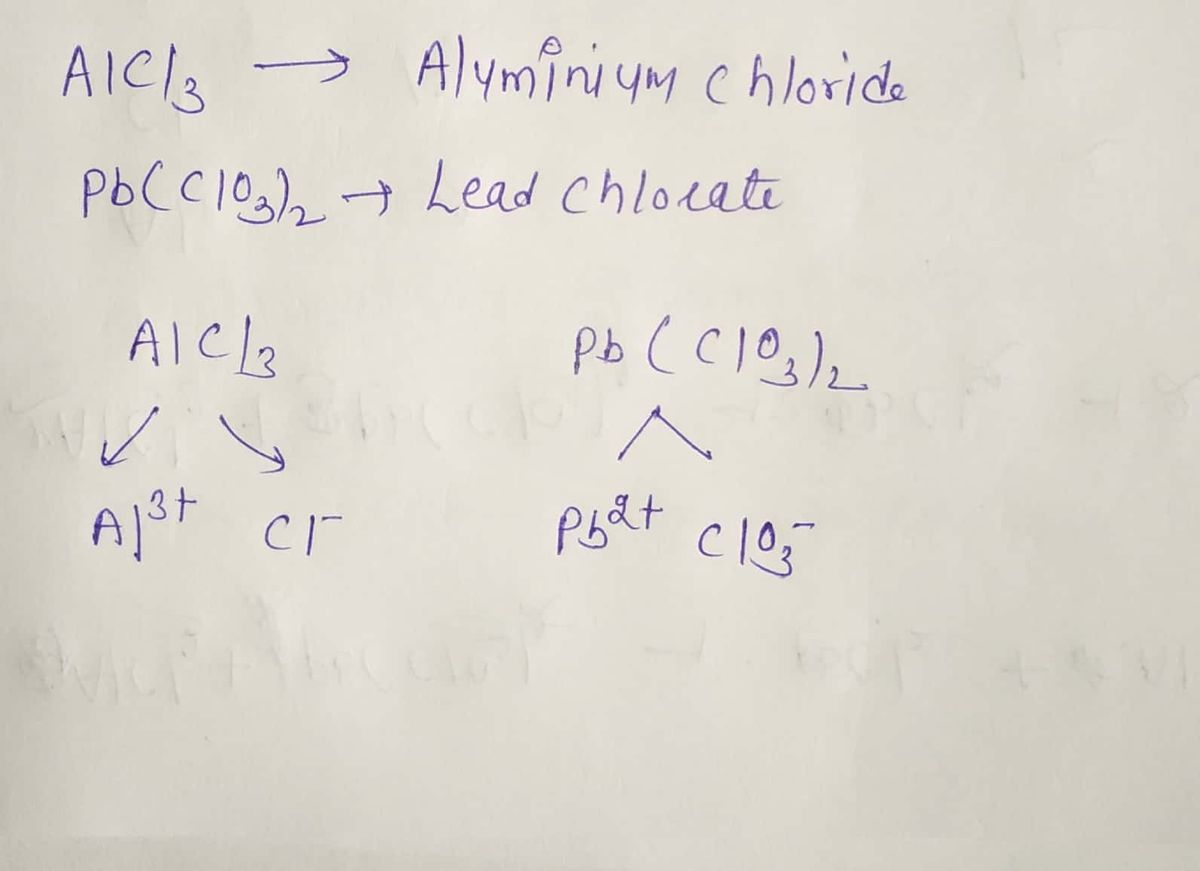 AlCl₃ → Aluminium chloride
Pb(ClO₃)₂ → Lead chlorate
AlCl₃ Pb(ClO₃)₂
Al³⁺ Cl⁻ Pb²⁺ ClO₃⁻